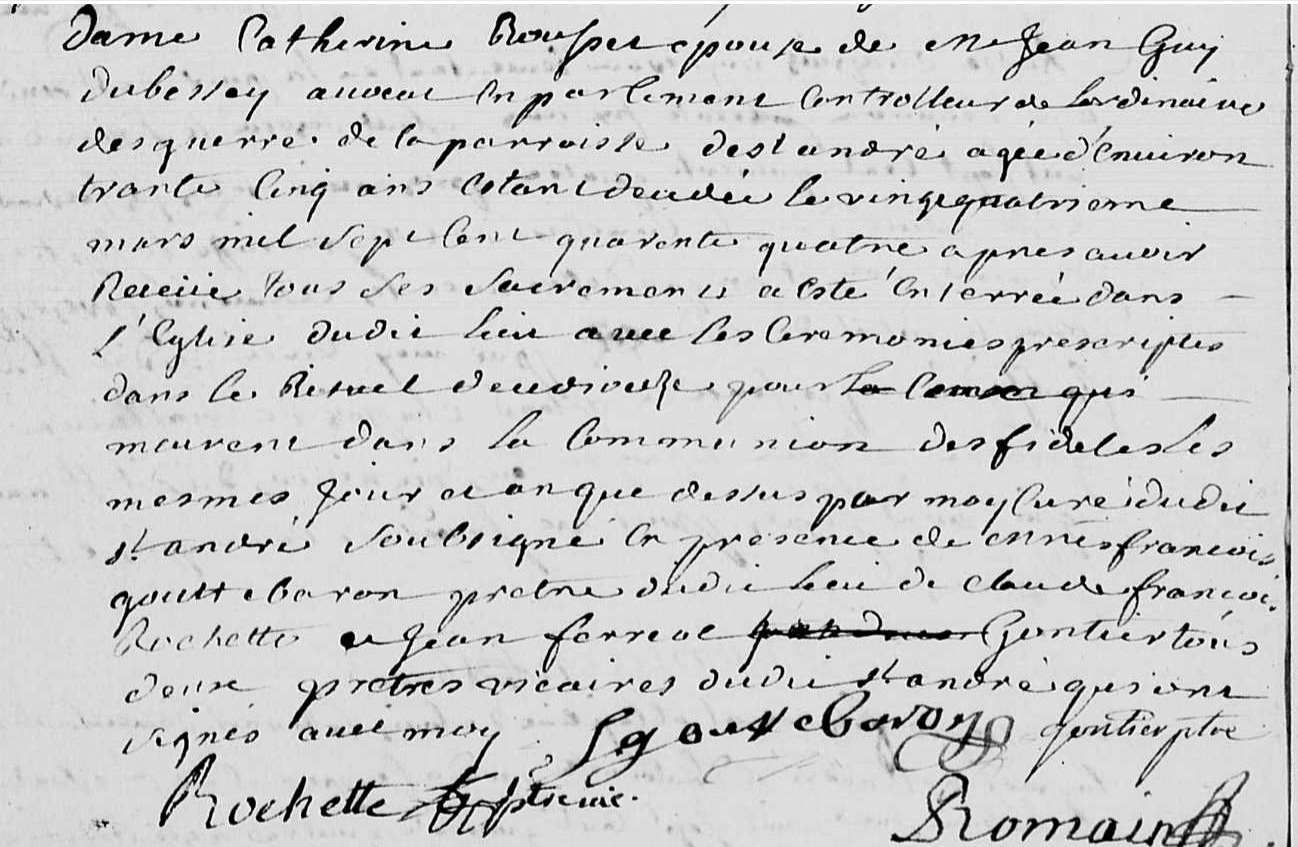 Dame Catherine Rousset epouse de Mre Jean Guy
Dubessey avocat en parlement controlleur de lordinaire
des guerre de la parroisse de st andré agée d'environ
trante cinq ans estant decedée le vingtquatrieme
mars mil sept cent quarente quatre apres avoir
Receüe tous ses sacrements a esté enterrée dans
l'Eglise dudit lieu avec les ceremonies prescriptes
dans le Rituel du dioceze pour qui
meurent dans la communion des fideles les
mesmes jour et an que dessus par moy curé dudit
st andré soubsigné en presence de mres francois
gouttebaron pretre dudit lieu de claude francois
Rochette et Jean ferreol Gontier tous
deux pretres vicaires dudit st andré qui ont
signés avec moy gouttebaron gontier ptre
Rochette ptre vic.
Romain